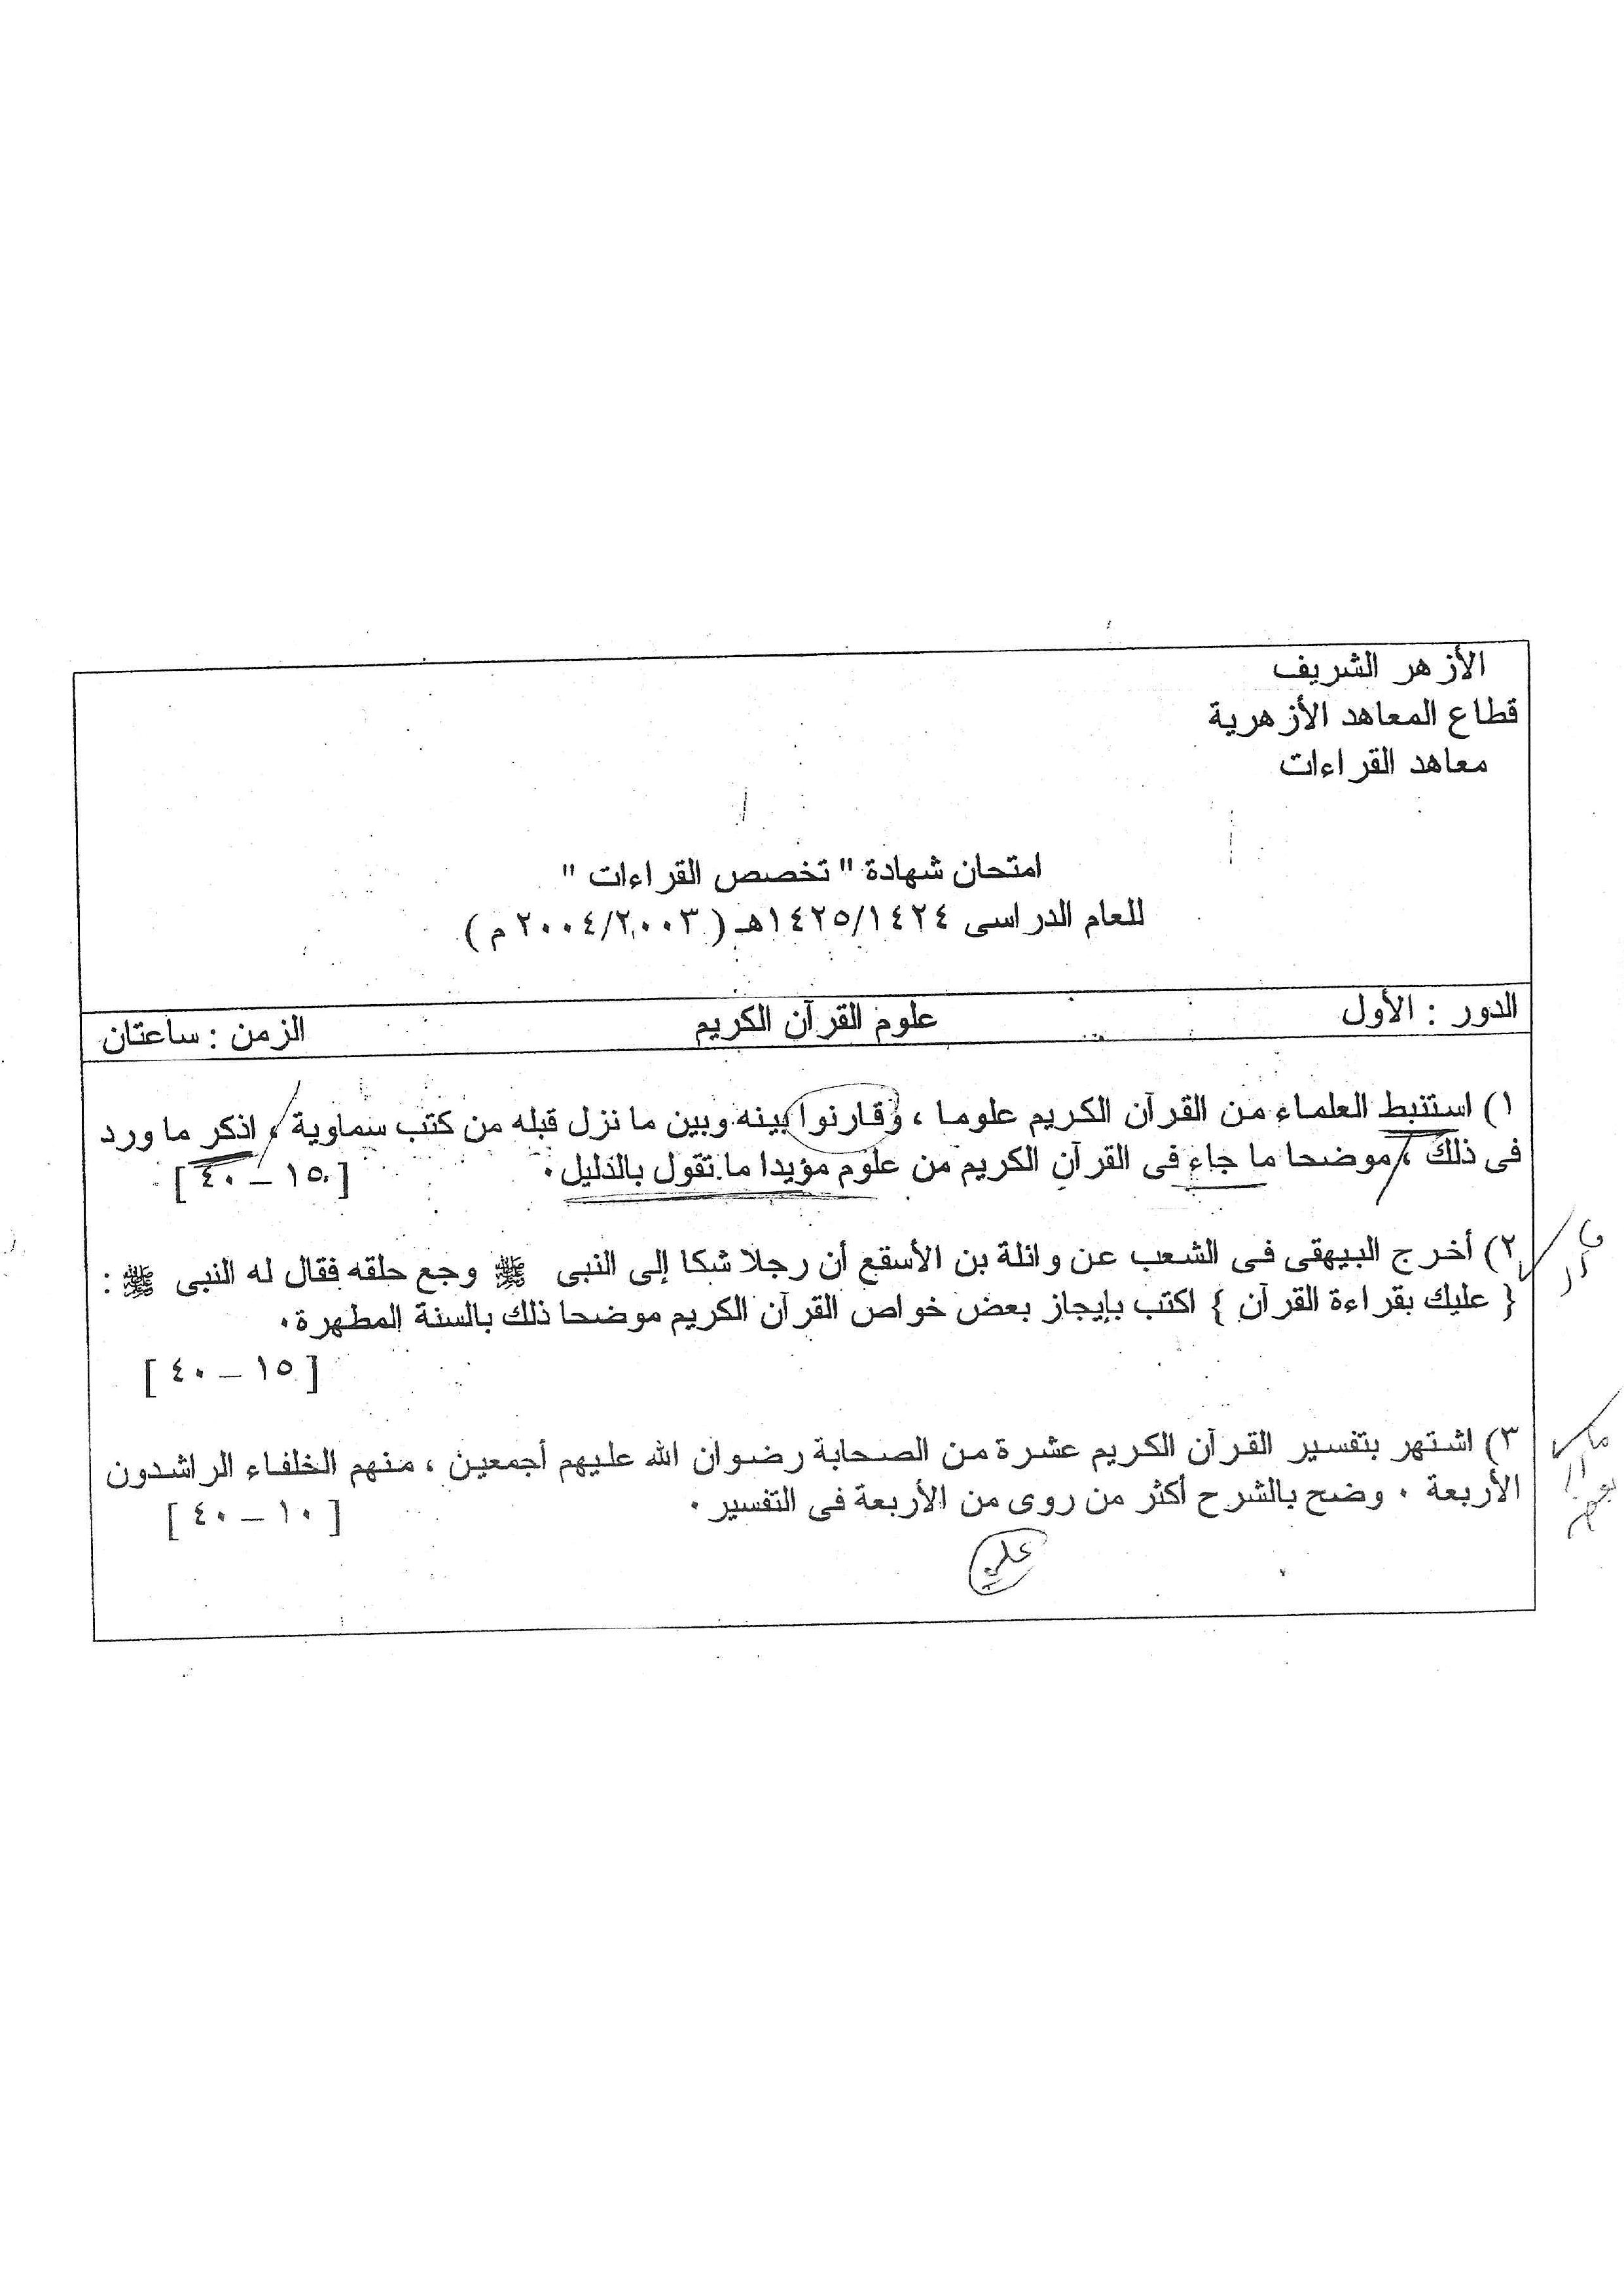 الأزهر الشريف
قطاع المعاهد الأزهرية
معاهد القراءات
امتحان شهادة " تخصص القراءات "
للعام الدراسى ١٤٢٥/١٤٢٤هـ ( ٢٠٠٤/٢٠٠٣ م )
الدور : الأول علوم القرآن الكريم الزمن : ساعتان
١) استنبط العلماء من القرآن الكريم علوما ، وقارنوا بينه وبين ما نزل قبله من كتب سماوية ، اذكر ما ورد
فى ذلك ، موضحا ما جاء فى القرآن الكريم من علوم مؤيدا ما تقول بالدليل ٠
[ ١٥ – ٤٠ ]
٢) أخرج البيهقى فى الشعب عن واثلة بن الأسقع أن رجلا شكا إلى النبى ﷺ وجع حلقه فقال له النبى ﷺ :
{ عليك بقراءة القرآن } اكتب بإيجاز بعض خواص القرآن الكريم موضحا ذلك بالسنة المطهرة ٠
[ ١٥ – ٤٠ ]
٣) اشتهر بتفسير القرآن الكريم عشرة من الصحابة رضوان الله عليهم أجمعين ، منهم الخلفاء الراشدون
الأربعة ٠ وضح بالشرح أكثر من روى من الأربعة فى التفسير ٠
[ ١٠ – ٤٠ ]
على